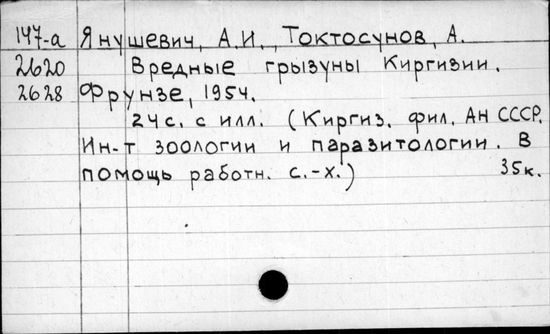 147-а Янушевич, А.И., Токтосунов, А.
2620 Вредные грызуны Киргизии.
2628 Фрунзе, 1954.
24с. с илл. (Киргиз. фил. АН СССР.
Ин-т зоологии и паразитологии. В
помощь работн. с.-х.) 35к.